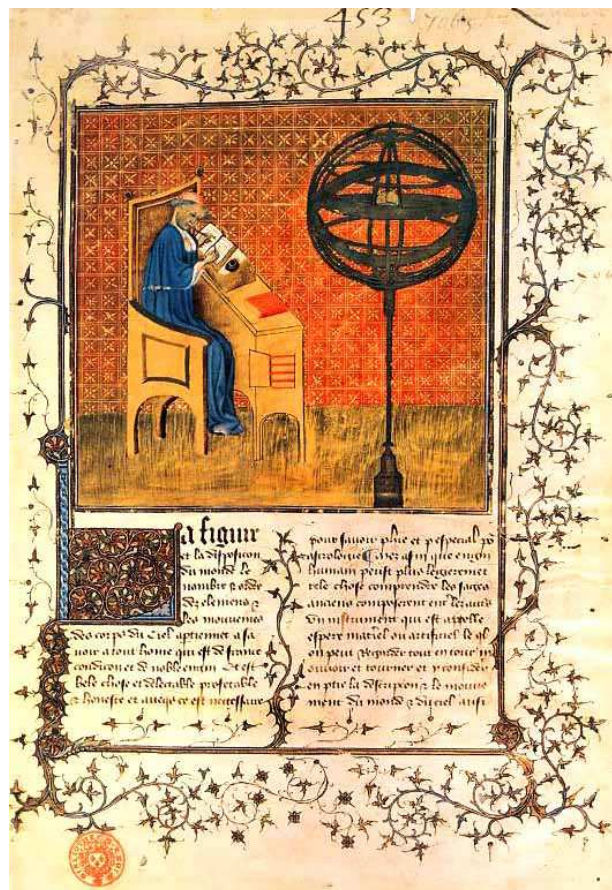 453
La figure
et la disposicion
du monde le
nombre & ordre
des elemens &
les mouvemens
des corps du ciel aptiennent a sa
voir a tout home qui est de franche
condicion et de noble engin Et est
bele chose et delectable profitable
& honeste et aveques ce est necessaire
pour savoir philosophie et p especial po
astrologie Mes afin que engin
humain peust plus legierement
tele chose comprendre les sages
anciens composerent entre les autres
Un instrument qui est appelle
espere materiel ou artificiel le quel
on peut regarder tout entour
mouvoir et tourner et considerer
en ptie la descripcion & le mouve
ment du monde & du ciel aussi